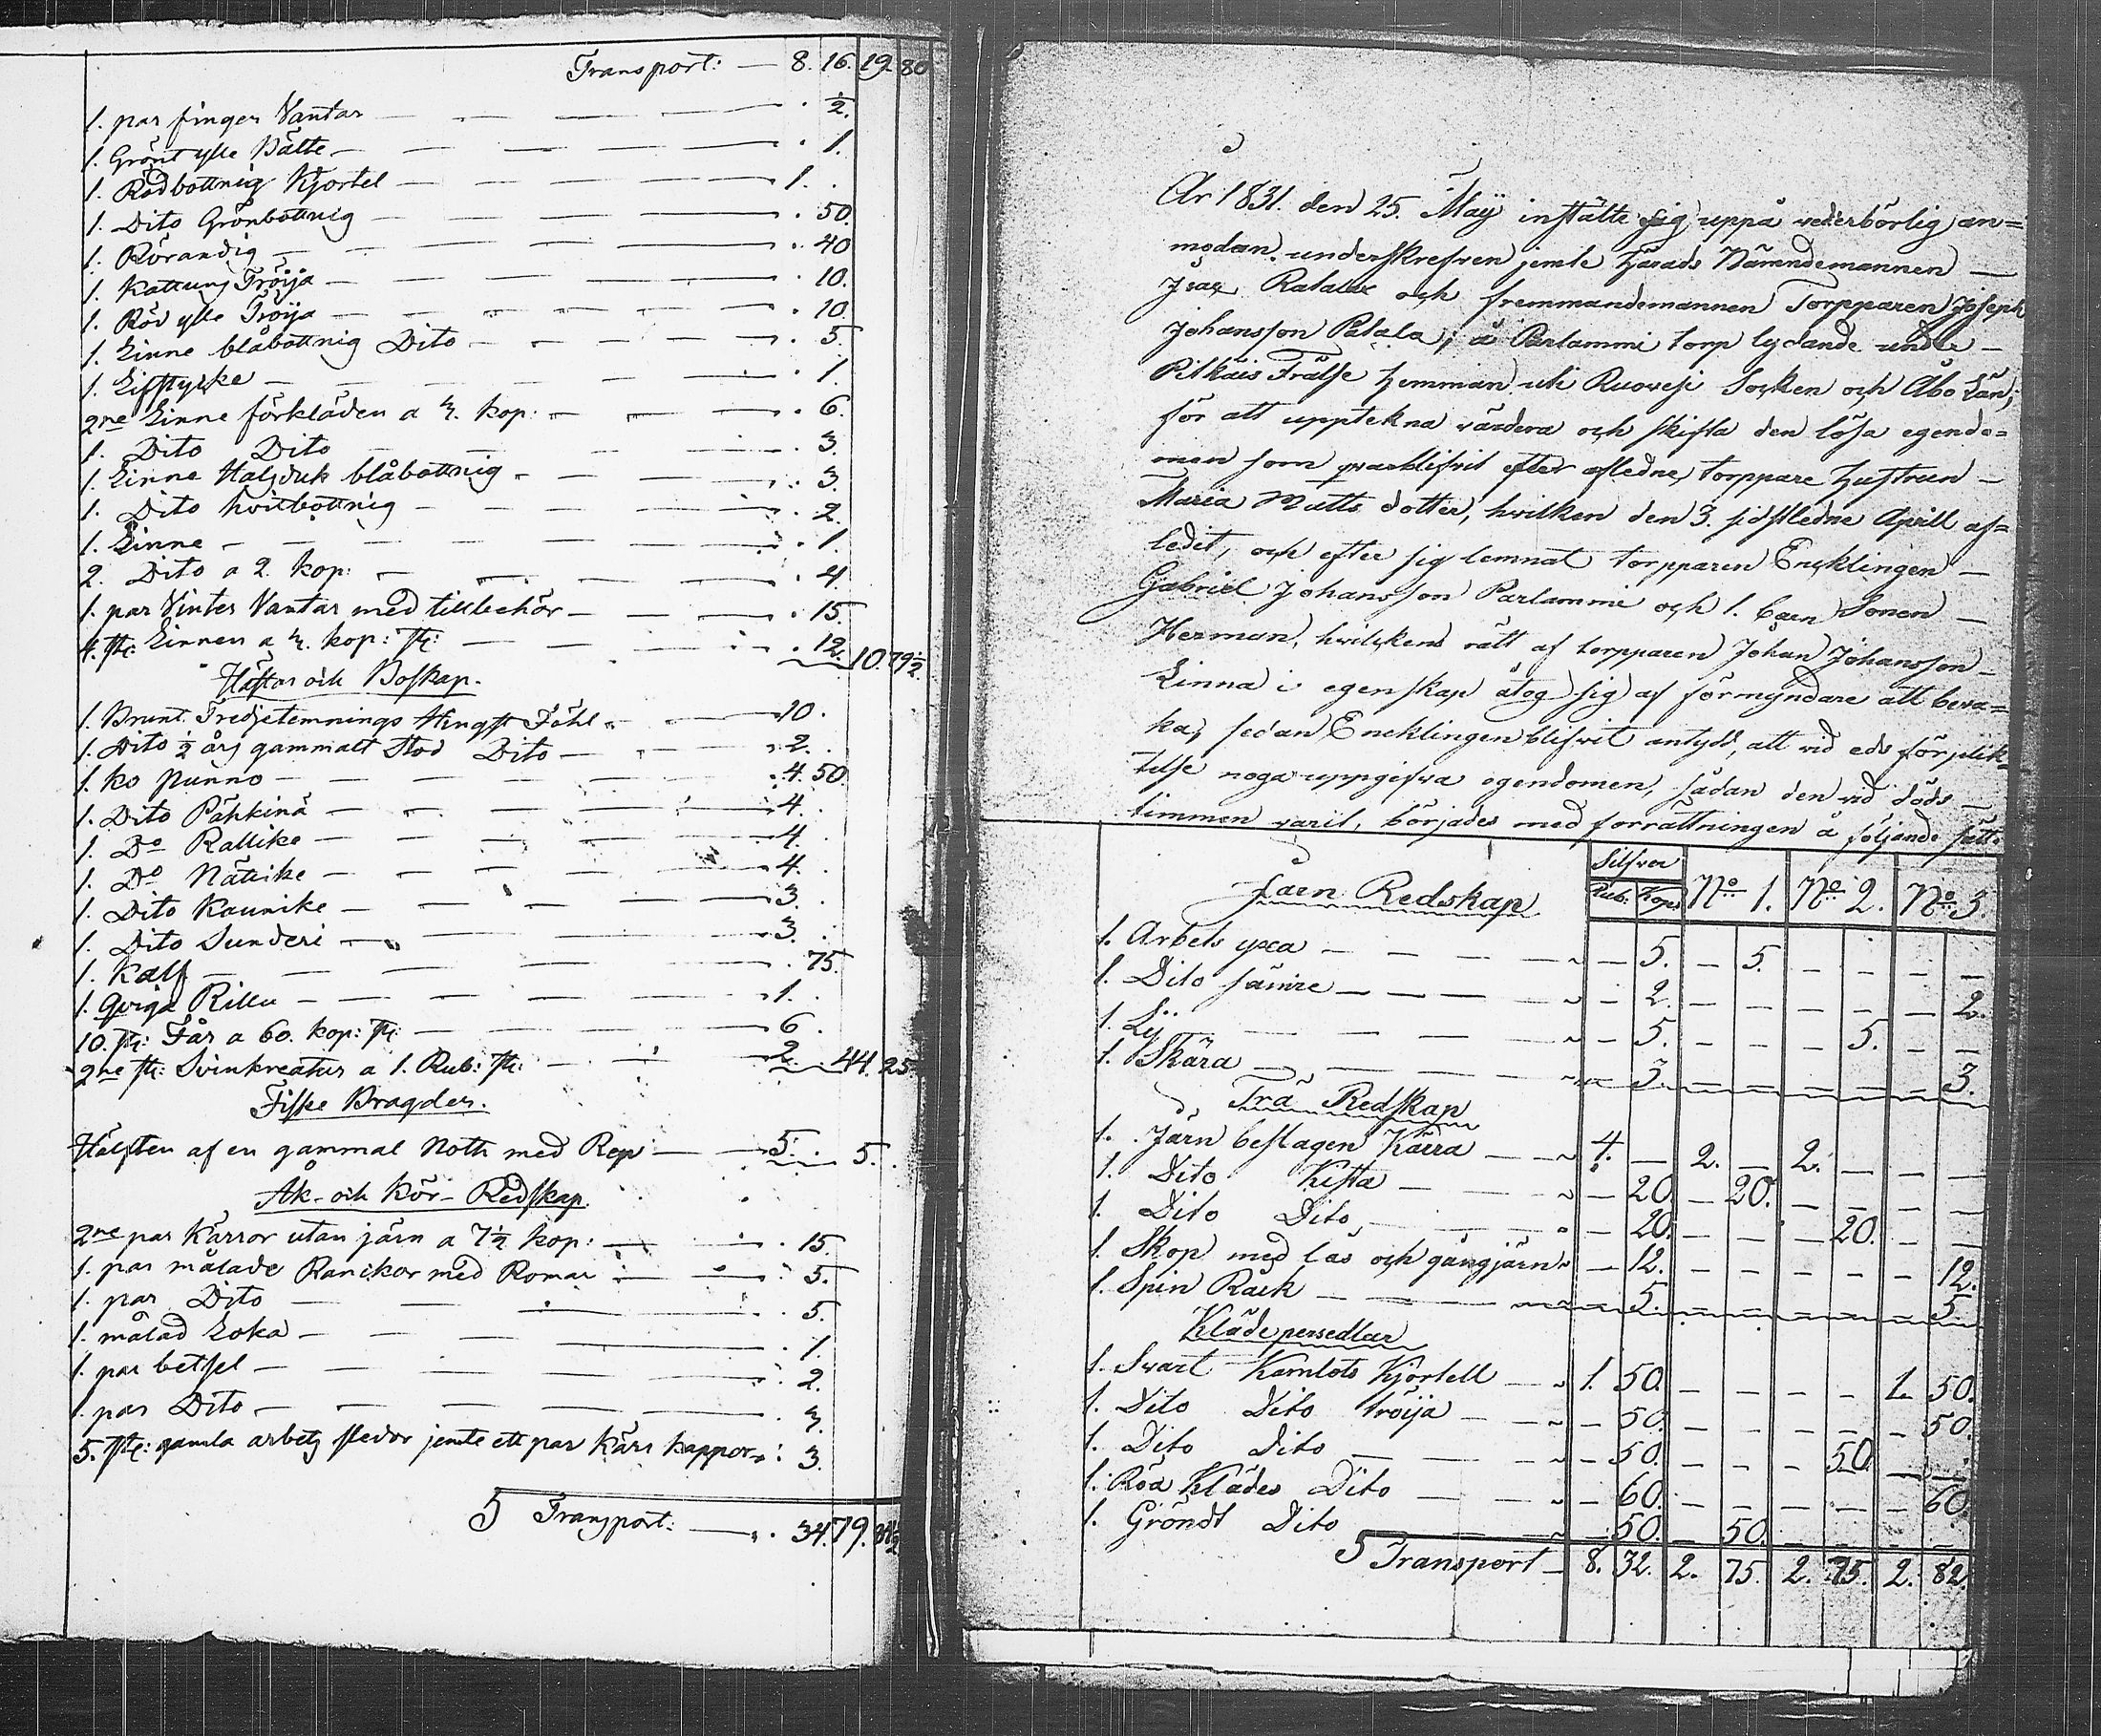 Transport: — 8. 16. 19. 80
1. par finger Vantar — — — . ½.
1. Grönt ylle Bälte — — — . 1.
1. Rödbottnig Kjortel — — — 1. .
1. Dito Grönbottnig — — — . 50.
1. Rörandig — — — . 40
1. Kattuns Tröija — — — . 10.
1. Röd ylle Tröija — — — . 10.
1. Linne blåbottnig Dito — — — . 5.
1. Lifstycke — — — . 1.
2ne Linne förkläden a 3. kop: — — — . 6.
1. Dito Dito — — . 3.
1. Linne Halsduk blåbottnig — — . 3.
1. Dito hvitbottnig — — — . 2.
1. Linne — — — . 1.
2. Dito a 2. kop: — — — . 4.
1. par Vinter Vantar med tillbehör — — . 15.
4. st: Linnen a 3. kop: st: — — . 12. 10. 79½
Hästar och Boskap.
1. Brunt Tredjetemnings Hingst Fåhl — — 10.
1. Dito ½ års gammalt Stod Dito — — 2. .
1. ko punno — — — . 4. 50.
1. Dito Pähkinä — — — 4. .
1. Do Rallike — — — 4. .
1. Do Nättike — — — 4. .
1. Dito Kaunike — — — 3. .
1. Dito Sunderi — — — 3. .
1. Kalf — — — . 75.
1. Qviga Rillu — — — 1. .
10. st: Får a 60. kop: st: — — 6. .
2ne st: Svinkreatur a 1. Rub: st: — — 2. . 44. 25.
Fiske Bragder.
Hälften af en gammal Noth med Rep — — 5. . 5. .
Åk- och Kör- Redskap.
2ne par Kärror utan järn a 7½ kop: — — . 15.
1. par målade Ranckor med Romar — — . 5.
1. par Dito — — — . 5.
1. målad Loka — — — . 1.
1. par betsel — — — . 2.
1. par Dito — — — . 3.
5. st: gamla arbets sledor jemte ett par Kärr kappor . 3.
S Transport: — . 34. 79.
År 1831. den 25. Maij instälte sig uppå vederbörlig an=
modan underskrefven jemte Härads Närendemannen —
Isac Ratala och fremmandemannen Torpparen Joseph
Johansson Patala, å Parlammi torp lydande under —
Pitkäis Frälse hemman uti Ruovesi Socken och Åbo Län;
för att upptekna värdera och skifta den lösa egendo=
men som qvarblifvit efter afledne torppare hustrun —
Maria Matts dotter, hvilken den 3. sidstledne Aprill af=
ledit, och efter sig lemnat torpparen Encklingen —
Gabriel Johansson Parlammi och 1. barn Sonen —
Herman, hvilckens rätt af torpparen Johan Johansson —
Linna i egenskap åtog sig af förmyndare att beva=
ka, sedan Encklingen blifvit antydd, att vid eds förplik=
telse noga uppgifva egendomen, sådan den vid döds —
timmen varit, börjades med förrättningen å följande sätt:
Silfver
Järn Redskap Rub: Kop: No 1. No 2. No 3
1. Arbets yxa — — — 5. — 5. — — — —
1. Dito sämre — — — 2. — — — — — 2.
1. Lij — — — 5. — — — 5. — —
1. Skära — — — 3. — — — — — 3.
Trä Redskap
1. Järn beslagen Kärra — 4. — 2. — 2. — — —
1. Dito Kista — — 20. — 20. — — — —
1. Dito Dito — — 20. — — — 20. — —
1. Skop med lås och gångjärn — 12. — — — — — 12.
1. Spin Råck — — 5. — — — — — 5.
Klädepersedlar
1. Svart Kamlots Kjortell — 1. 50. — — — — 1. 50.
1. Dito Dito Tröija — — 50. — — — — — 50.
1. Dito Dito — — 50. — — — 50. — —
1. Röd Klädes Dito — — 60. — — — — — 60.
1. Gröndt Dito — — 50. — 50. — — — —
S Transport — 8. 32. 2. 75. 2. 75. 2. 82.